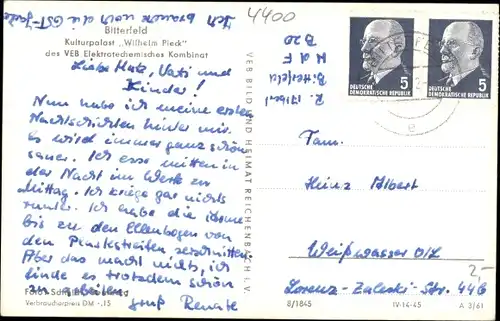 Ich brauche noch die GST-Jacke
4400
Bitterfeld
Kulturpalast „Wilhelm Pieck"
des VEB Elektrotechemisches Kombinat
Liebe Mutz, Vati und
Kinder!
Nun habe ich meine ersten
Nachtschichten hinter mir.
es wird immer ganz schön
sauer. Ich esse mitten in
der Nacht im Werk zu
Mittag. Ich kriege gar nichts
runter. Ich habe die Arme
bis zu den Ellenbogen von
den Plastestreifen zerschnitten
Aber das macht nichts, ich
finde es trotzdem schön
zu arbeiten.
Gruß Renate
Foto:
Verbraucherpreis DM -,15
VEB BILD UND HEIMAT REICHENBACH I. V.
R. Albert
Bitterfeld
W d F
B 20
5
DEUTSCHE
DEMOKRATISCHE REPUBLIK
5
DEUTSCHE
DEMOKRATISCHE REPUBLIK
e
Fam.
Heinz Albert
Weißwasser O/L
Lorenz-Zaleski-Str. 44G
2,-
8/1845
IV-14-45
A 3/61